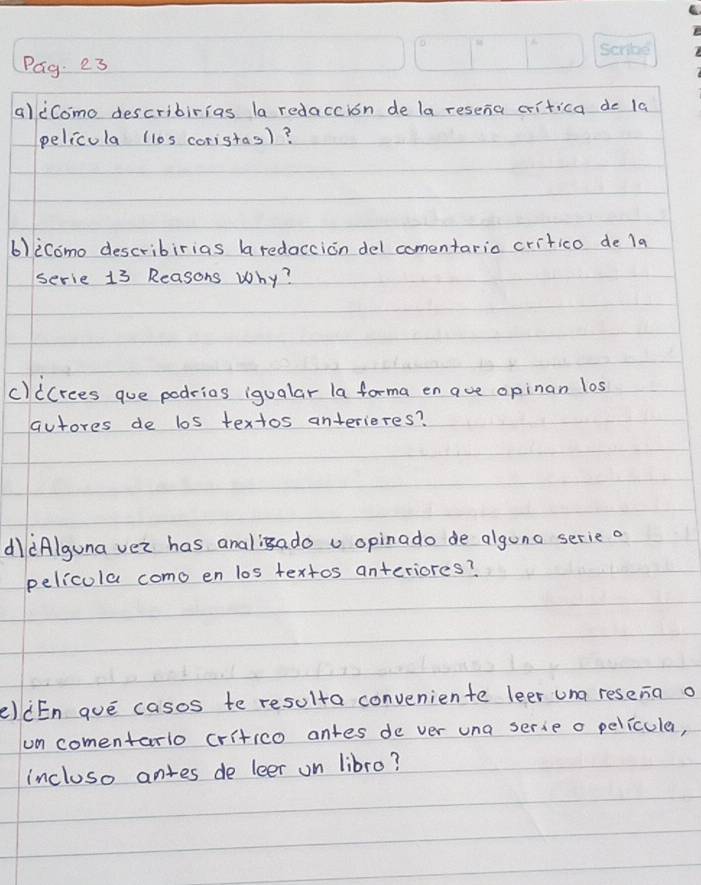 Scribe
Pág. 23
a) ¿Cómo describirías la redacción de la reseña crítica de la
película (los coristas)?
b) ¿cómo describirias la redacción del comentario crítico de la
serie 13 Reasons Why?
c) ¿Crees que podrías igualar la forma en que opinan los
autores de los textos anterieres?
d) ¿Alguna vez has analizado u opinado de alguna serie o
película como en los textos anteriores?
e) ¿En qué casos te resulta conveniente leer una reseña o
un comentario crítico antes de ver una serie o película,
incluso antes de leer un libro?